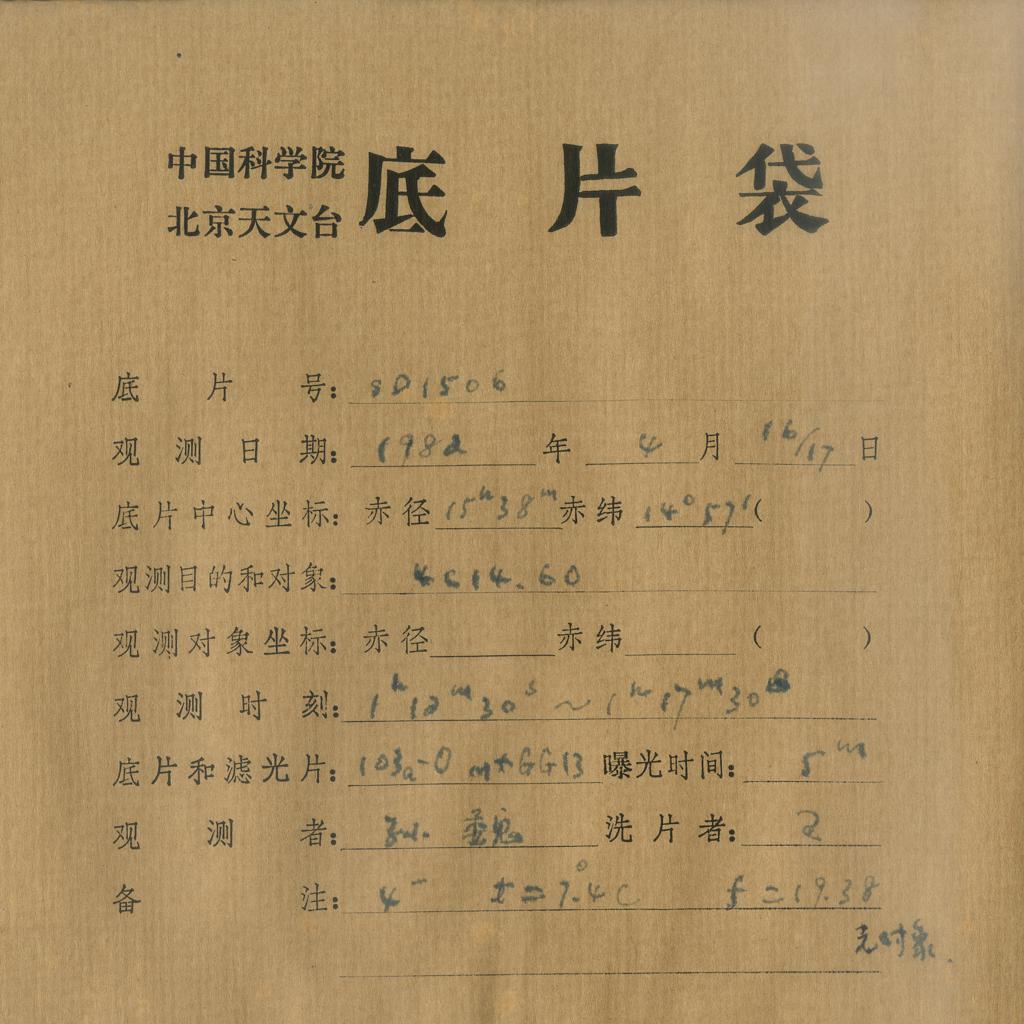 中国科学院
北京天文台
底片袋
底片号：SD1506
观测日期：1982年4月16/17日
底片中心坐标：赤径15h38m赤纬14°57′（ ）
观测目的和对象：4C14.60
观测对象坐标：赤径 赤纬 （ ）
观测时刻：1h12m30s～1h17m30s
底片和滤光片：103a-O +GG13 曝光时间：5m
观测者：孙 魏 洗片者：
备注：4m t=7.4°C f=19.38
对象.